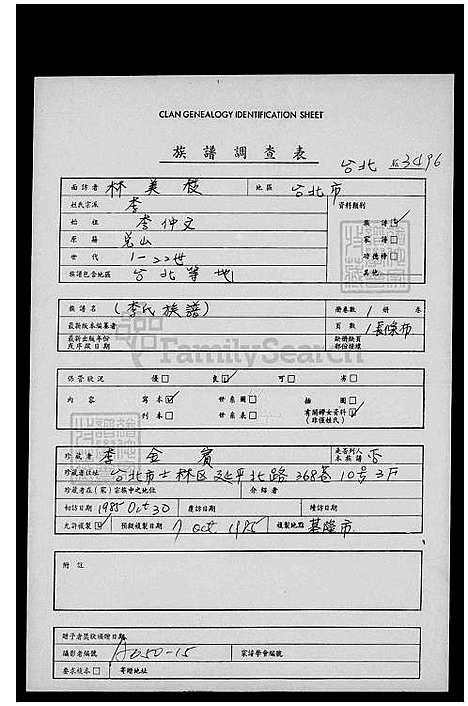 CLAN GENEALOGY IDENTIFICATION SHEET
族譜調查表
台北 3496
面訪者 林美枝 地區 台北市
姓氏宗派 李 資料類別
始祖 李仲文 族譜☑
原籍 兌山 家譜□
世代 1-22世 功德榜□
族譜包含地區 台北等地 其他
族譜名 (李氏族譜) 冊卷數 1 冊 卷
最新版本編纂者 頁數 1長條布
最新出版年份及序跋日期 缺冊缺頁部份種類
保管狀況 優□ 良☑ 可□ 劣□
內容 寫本☑ 世系圖□ 插圖□
刊本□ 世系表□ 有關婦女資料☑ (非僅姓氏)
珍藏者 李金賓 是否列入本族譜 否
珍藏者住址 台北市士林区延平北路368巷10号3F
珍藏者在(家)宗族中之地位 介紹者
初訪日期 1985 Oct 30 復訪日期 續訪日期
允許複製☑ 預擬複製日期 7 Oct 1985 複製地點 基隆市
附註
贈予者獎狀補贈日期
攝影者編號 A050-15 家譜學會編號
要求校本□ 寄贈地址
FamilySearch